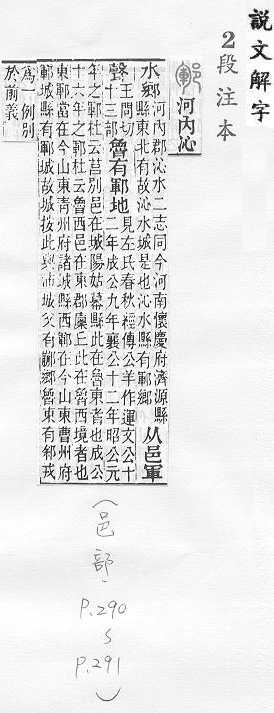 說文解字
2段注本
鄆 河內沁
水鄉 河內郡沁水二志同今河南懷慶府濟源縣
縣東北有故沁水城是也沁水縣有鄆鄉 从邑軍
聲 王問切
十三部 魯有鄆地 見左氏春秋經傳公羊作運文公十
二年成公九年襄公十二年昭公元
年之鄆杜云莒別邑在城陽姑幕縣此在魯東者也成公
十六年之鄆杜云魯西邑在東郡廩丘此在魯西境者也
東鄆當在今山東青州府諸城縣西鄆在今山東曹州府
鄆城縣有鄆城故城按此與沛城父有鄉魯東有戎
為一例別
於前義
(邑部·
P.290
~
P.291
)